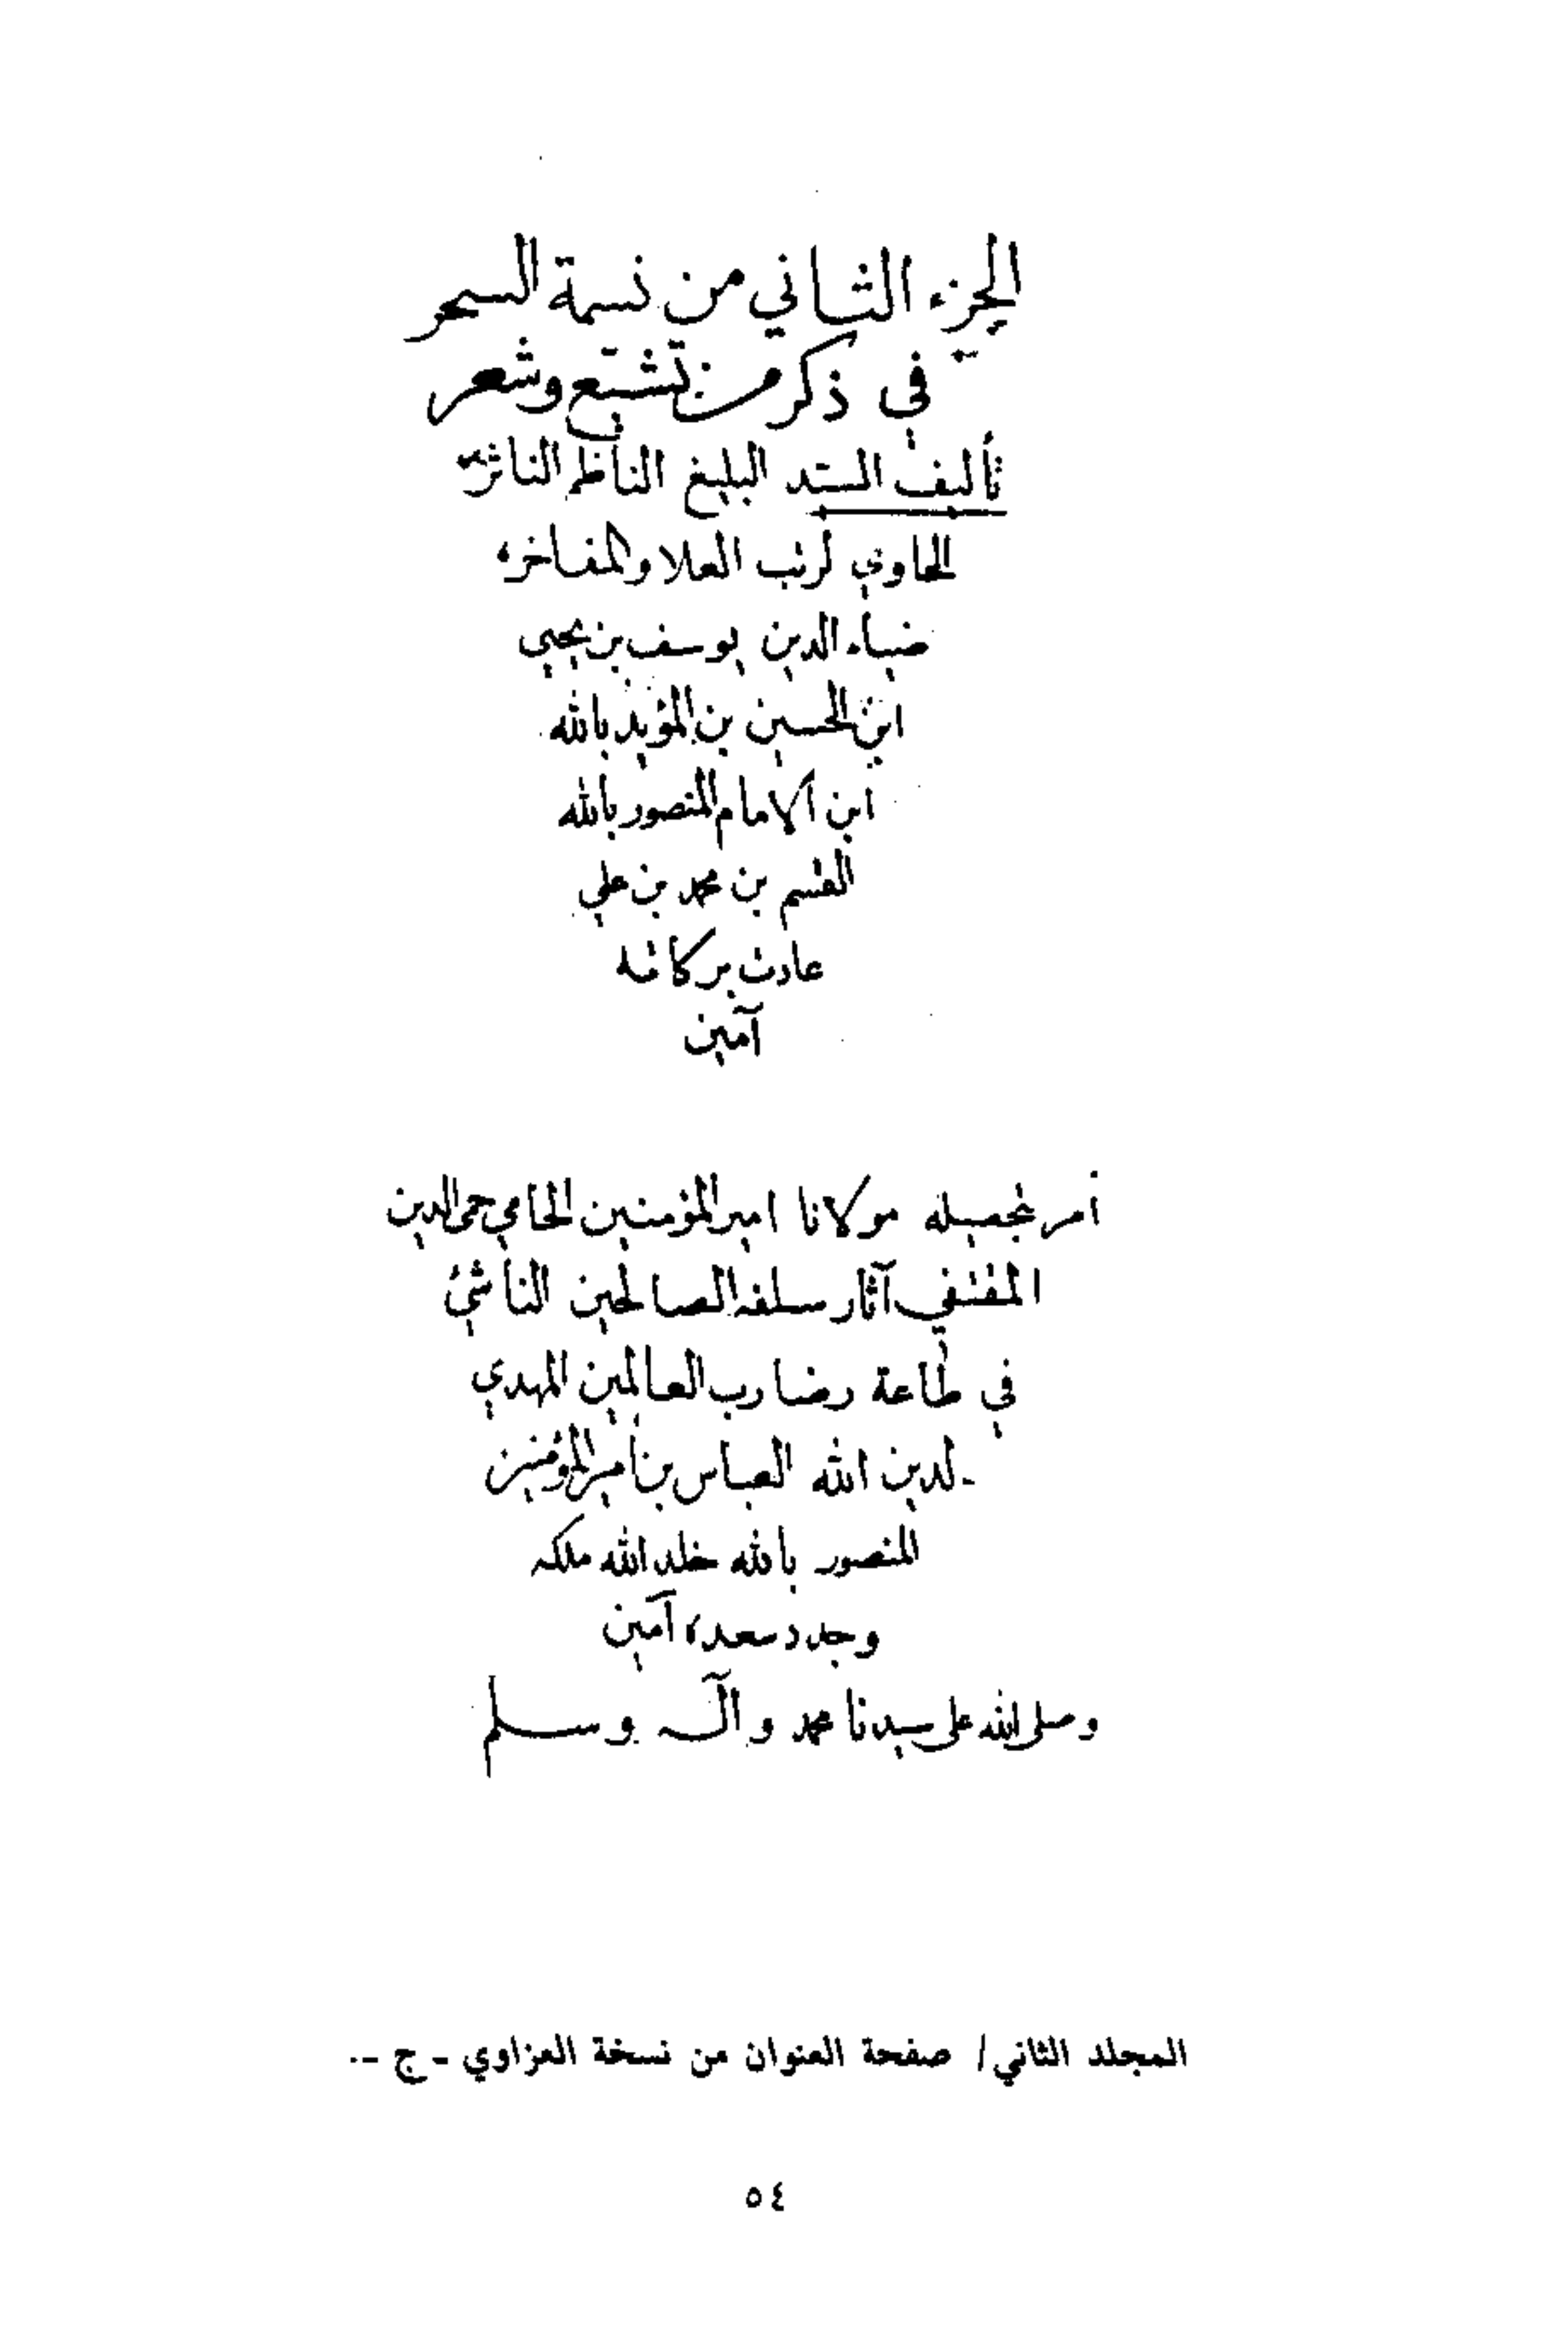 الجزء الثاني من نسمة السحر
في ذكر من تشيع وشعر
تأليف السيد البليغ الناظم الناثر
الحاوي لرتب العلا والمفاخر
ضياء الدين يوسف بن يحيى
ابن الحسين بن المؤيد بالله
ابن الامام المنصور بالله
القسم بن محمد بن علي
عادت بركاته
آمين
أمر بتحصيله مولانا امير المؤمنين الحامي حمى الدين
المقتفي آثار سلفه الصالحين الناشئ
في طاعة رضا رب العالمين المهدي
لدين الله العباس بن أمير المؤمنين
المنصور بالله خلد الله ملكه
وجدد سعده آمين
وصلى الله على سيدنا محمد وآله وسلم
المجلد الثاني / صفحة العنوان من نسخة العزاوي - ج -.
٥٤